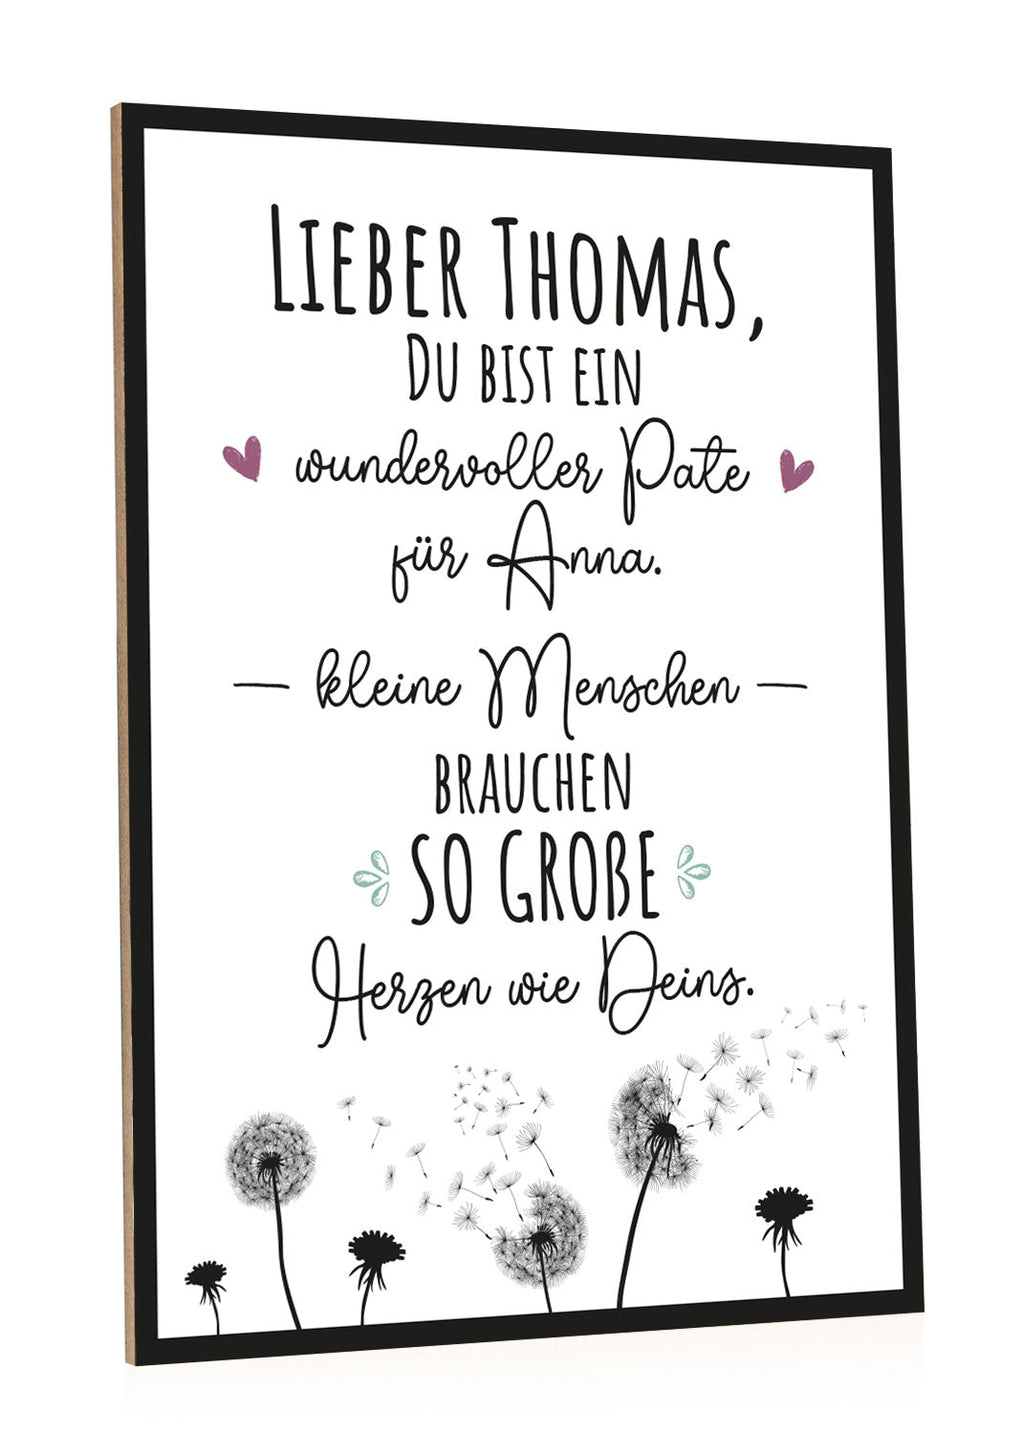 LIEBER THOMAS,
DU BIST EIN
wundervoller Pate
für Anna.
– kleine Menschen –
BRAUCHEN
SO GROßE
Herzen wie Deins.